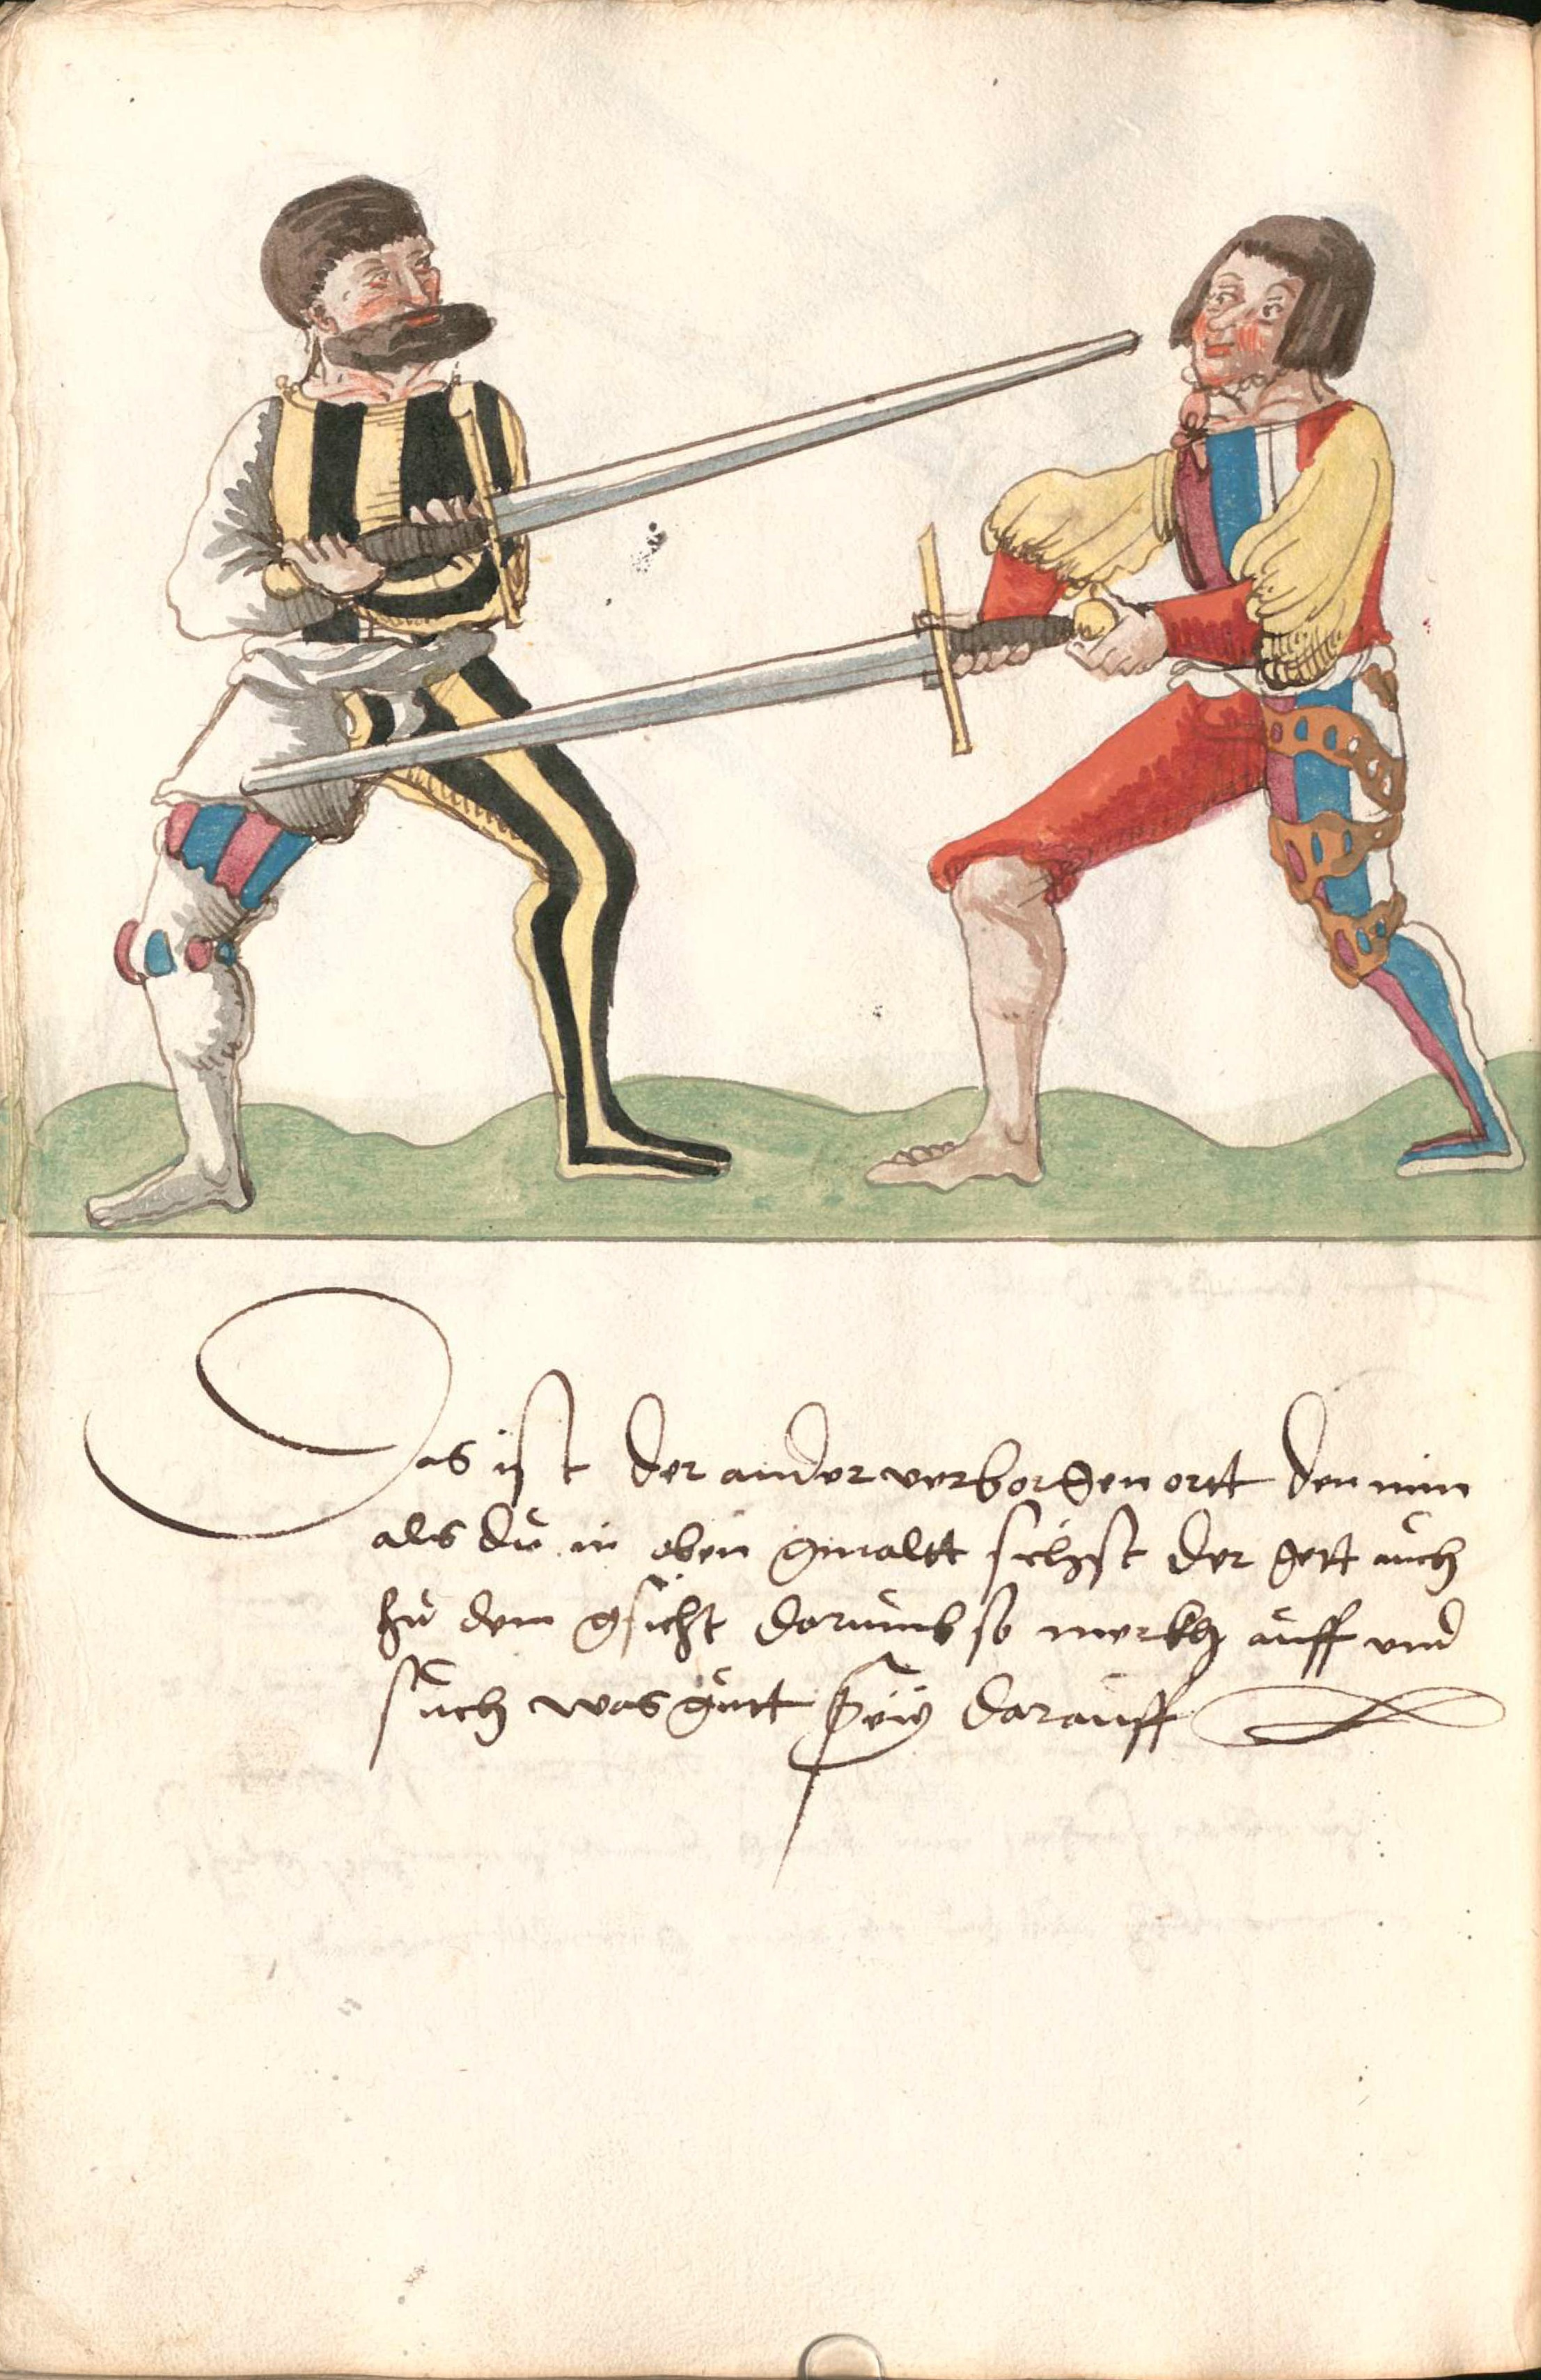 Das ist der ander verborgen ortt den nim
als du in oben gmaltt sichst der gett auch
zu dem gsicht darumb so merkh auff und
such was gutt sey darauff